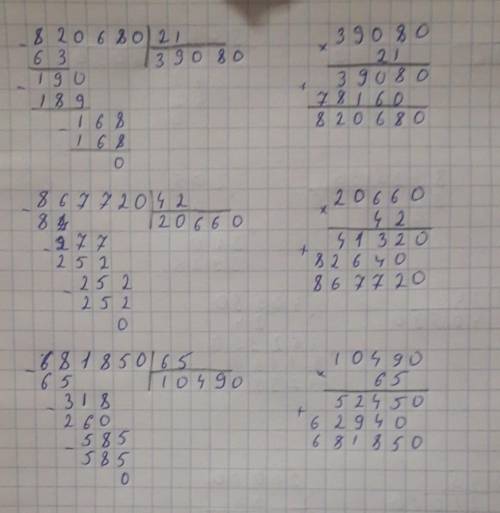 - 820680 | 21
63 | 39080
- 190
189
- 168
168
0
× 39080
21
+ 39080
78160
820680
- 867720 | 42
84 | 20660
- 277
252
- 252
252
0
× 20660
42
+ 41320
82640
867720
- 681850 | 65
65 | 10490
- 318
260
- 585
585
0
× 10490
65
+ 52450
62940
681850